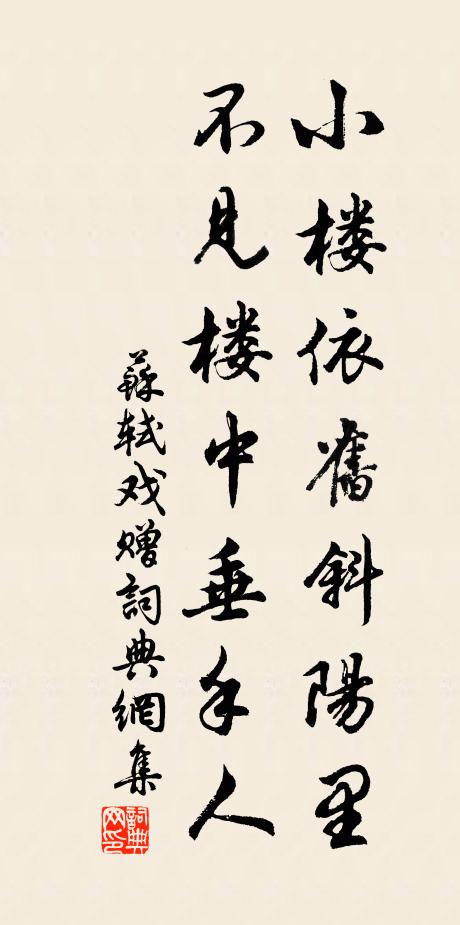 小楼依舊斜陽里
不見楼中垂手人
蘇軾戏赠詞典網集
詞典网印